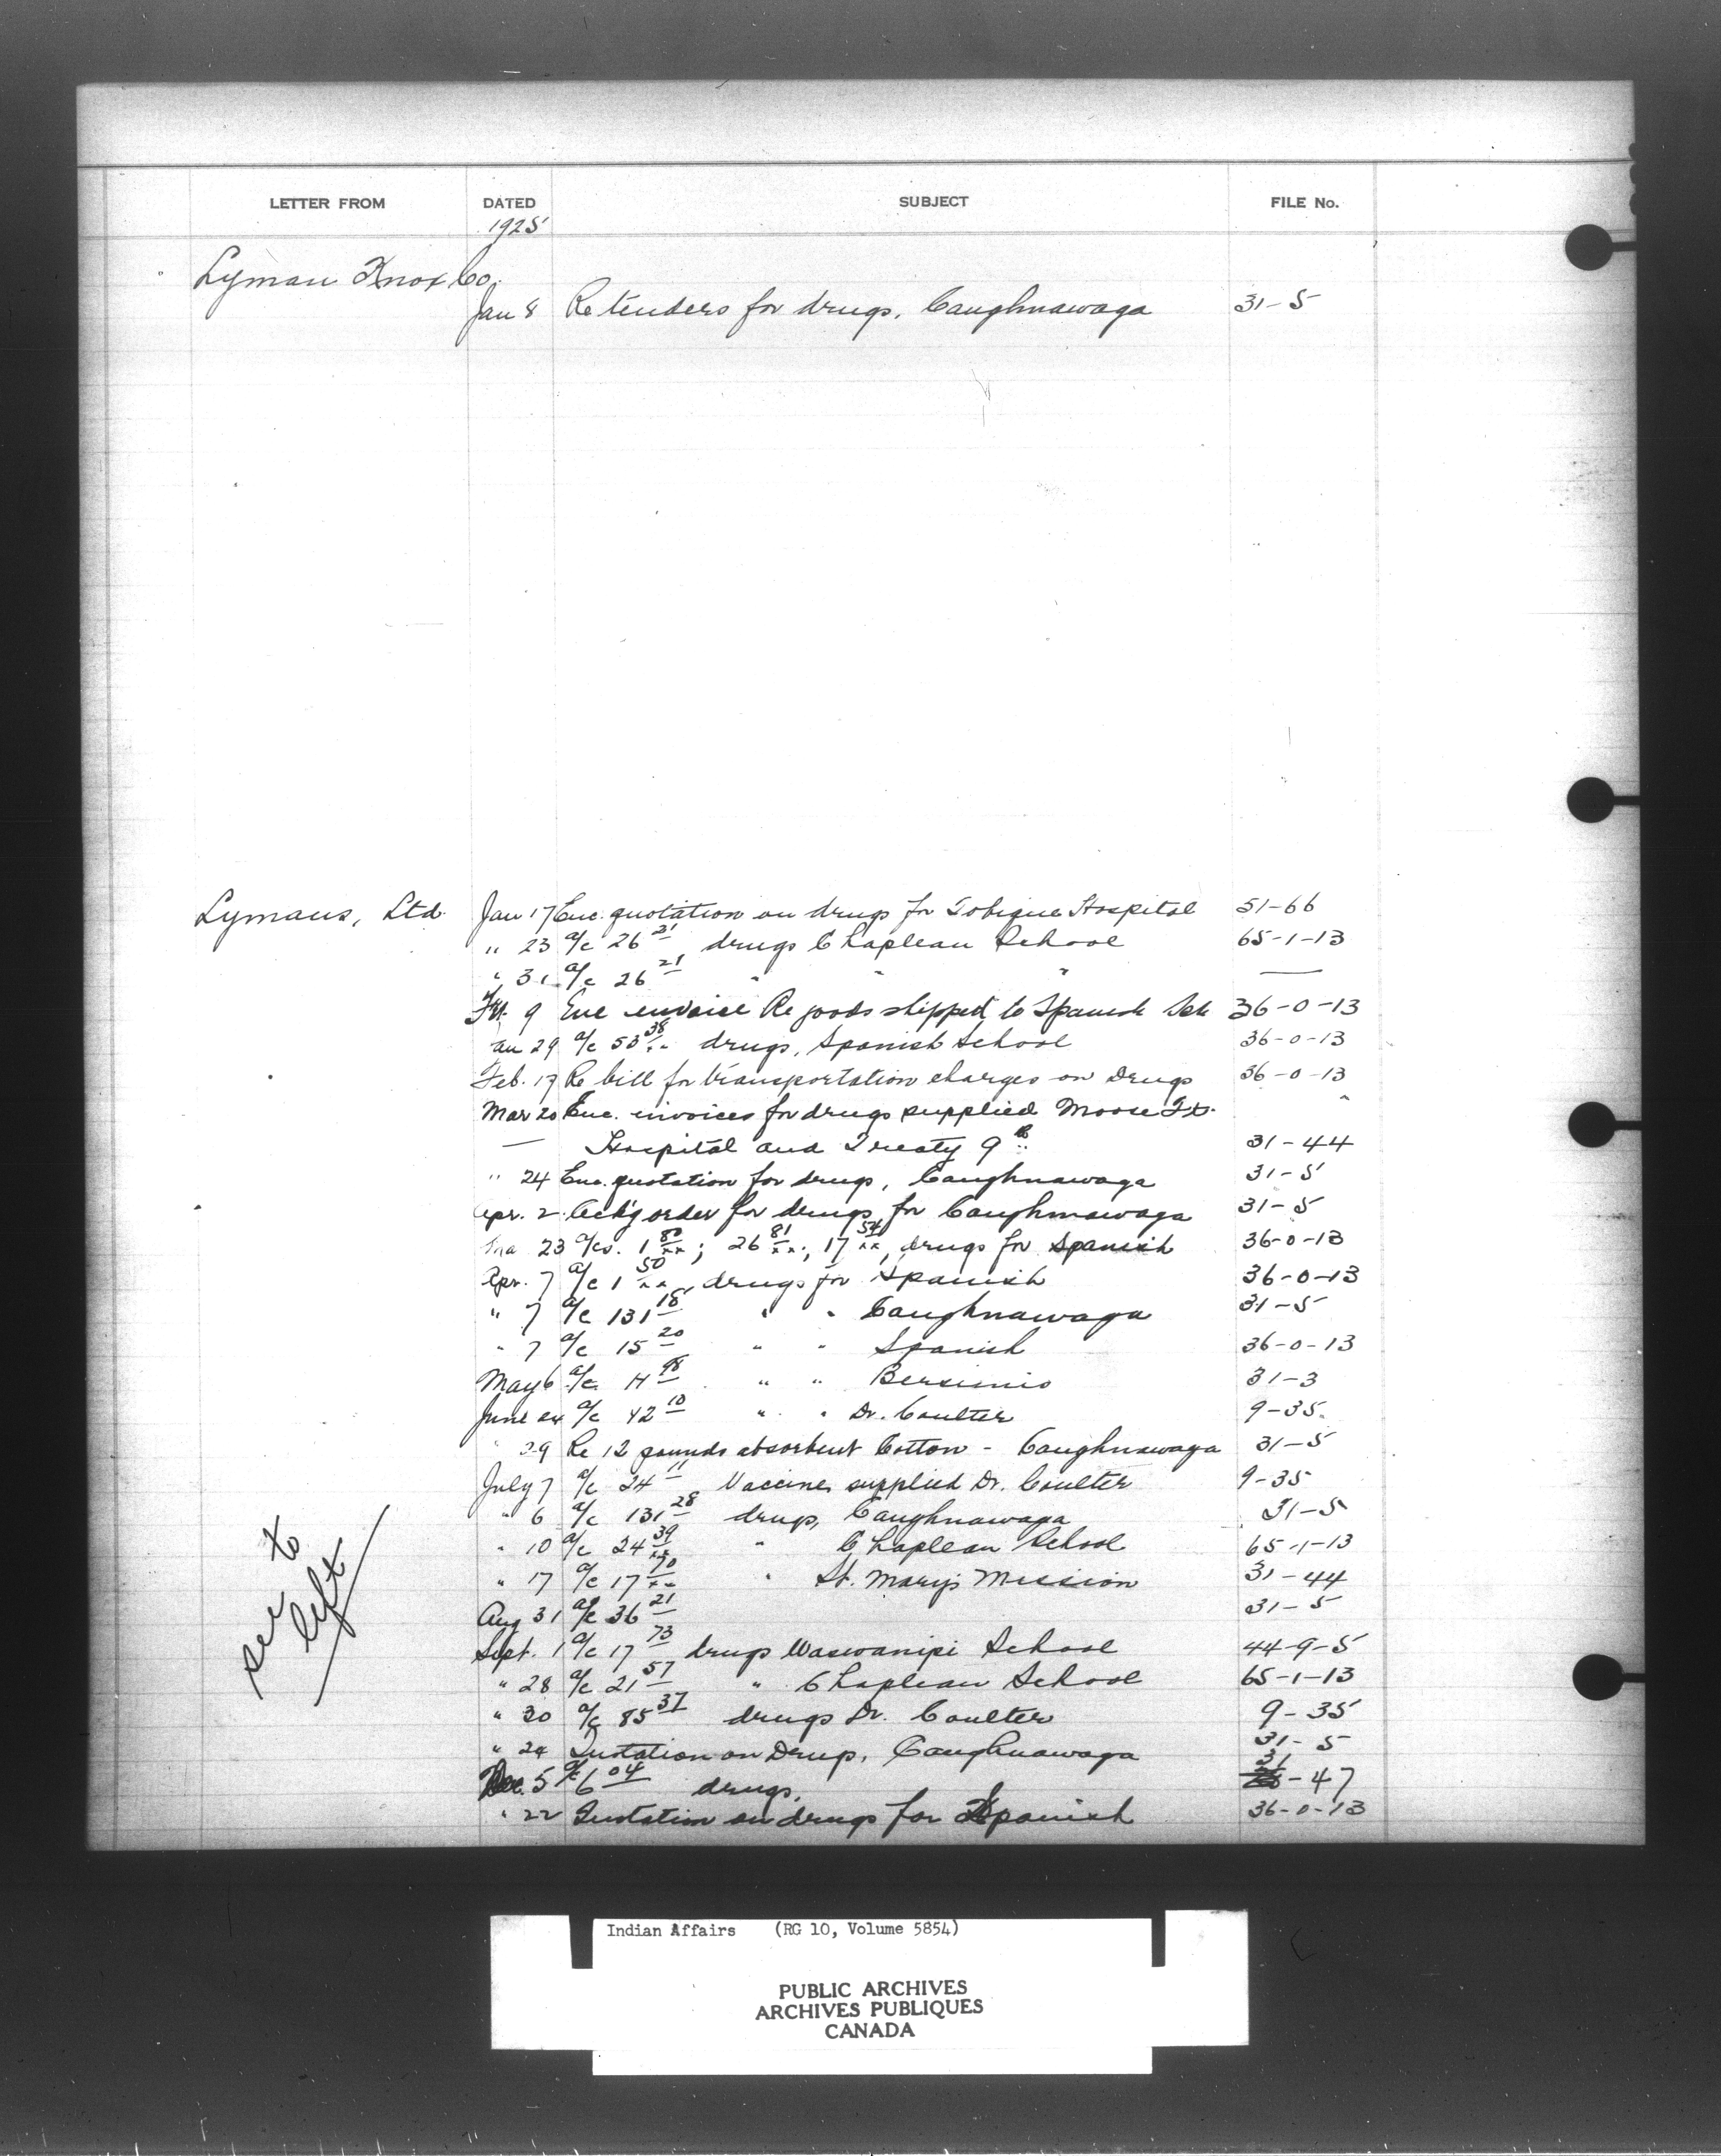 LETTER FROM DATED SUBJECT FILE No.
1925
Lyman Knox Co.
Jan 8 Re tenders for drugs, Caughnawaga 31-5
Lymans, Ltd. Jan 17 Enc. quotation on drugs for Tobique Hospital 51-66
" 23 a/c 26 21 drugs Chapleau School 65-1-13
" 31 a/c 26 21 " " " —
Feb. 9 Enc invoice Re goods shipped to Spanish Sch 36-0-13
Jan 29 a/c 50 38 drugs, Spanish School 36-0-13
Feb. 17 Re bill for transportation charges on Drugs 36-0-13
Mar 20 Enc. invoices for drugs supplied Moose Ft.
— Hospital and Treaty 9 31-44
" 24 Enc. quotation for drugs, Caughnawaga 31-5
Apr. 2 Ack'g order for drugs for Caughnawaga 31-5
Mar 23 a/cs. 1 80/xx; 26 81/xx; 17 54/xx, drugs for Spanish 36-0-13
Apr. 7 a/c 1 50/xx, drugs for Spanish 36-0-13
" 7 a/c 131 18 " " Caughnawaga 31-5
" 7 a/c 15 20 " " Spanish 36-0-13
May 6 a/c 98 " " Bersimis 31-3
June 24 a/c 42 10 " " Dr. Coulter 9-35
" 29 Re 12 pounds absorbent Cotton - Caughnawaga 31-5
July 7 a/c 24 11 Vaccines supplied Dr. Coulter 9-35
" 6 a/c 131 28 drugs, Caughnawaga 31-5
" 10 a/c 24 39/xx " Chapleau School 65-1-13
" 17 a/c 17 70/xx " St. Mary's Mission 31-44
Aug 31 a/c 36 21 31-5
Sept. 1 a/c 17 73 drugs Waswanipi School 44-9-5
" 28 a/c 21 57 " Chapleau School 65-1-13
" 30 a/c 85 37 drugs Dr. Coulter 9-35
" 24 Quotation on Drugs, Caughnawaga 31-5
Dec. 5 a/c 6 04 drugs, 31-47
" 22 Quotation on drugs for Spanish 36-0-13
see to
left
Indian Affairs (RG 10, Volume 5854)
PUBLIC ARCHIVES
ARCHIVES PUBLIQUES
CANADA